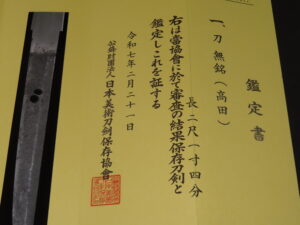 鑑定書
一、刀 無銘(高田)
長二尺一寸四分
右は當協會に於て審査の結果保存刀剣と
鑑定しこれを証する
令和七年二月二十一日
公益財団法人日本美術刀剣保存協會